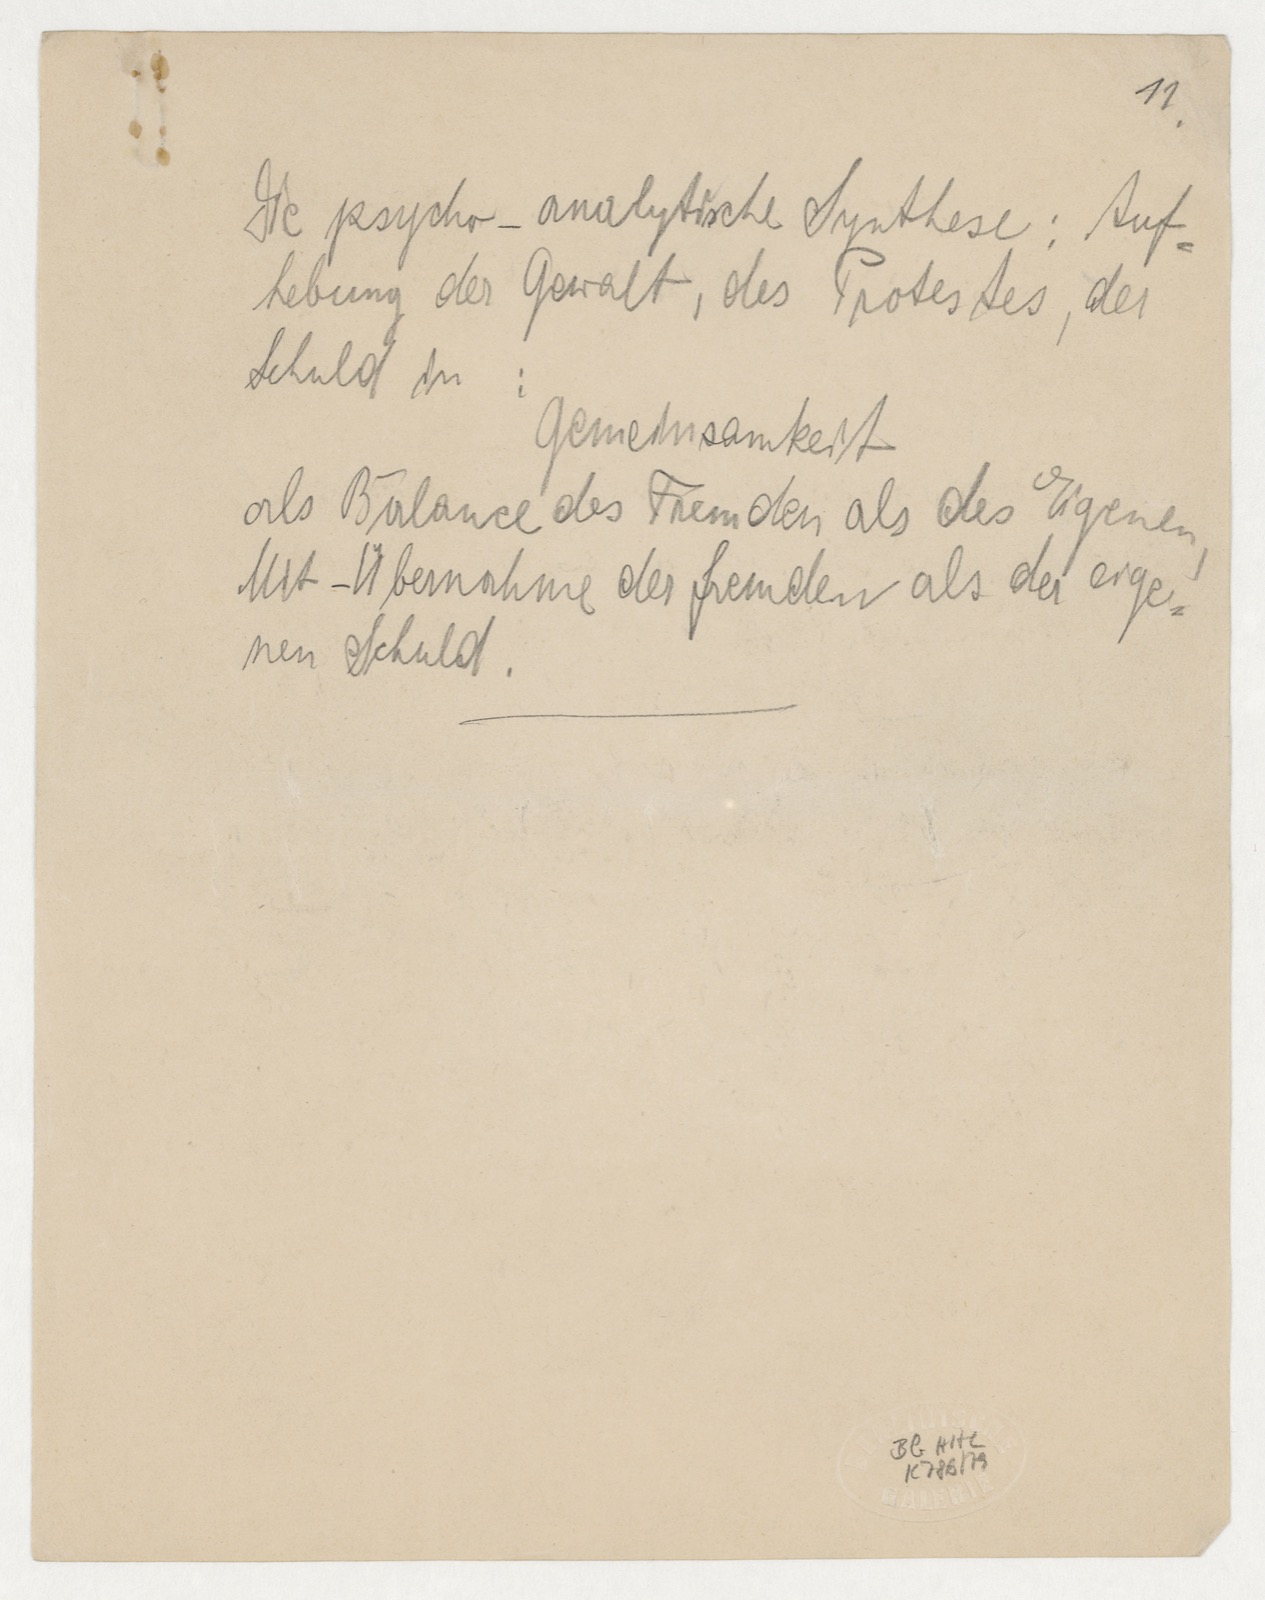 11.
Die psycho-analytische Synthese: Auf-
hebung der Gewalt, des Protestes, der
Schuld in :
Gemeinsamkeit
als Balance des Fremden als des Eigenen,
Mit-Übernahme der fremden als der eige-
nen Schuld.
BG HHC
K786/79
GALERIE